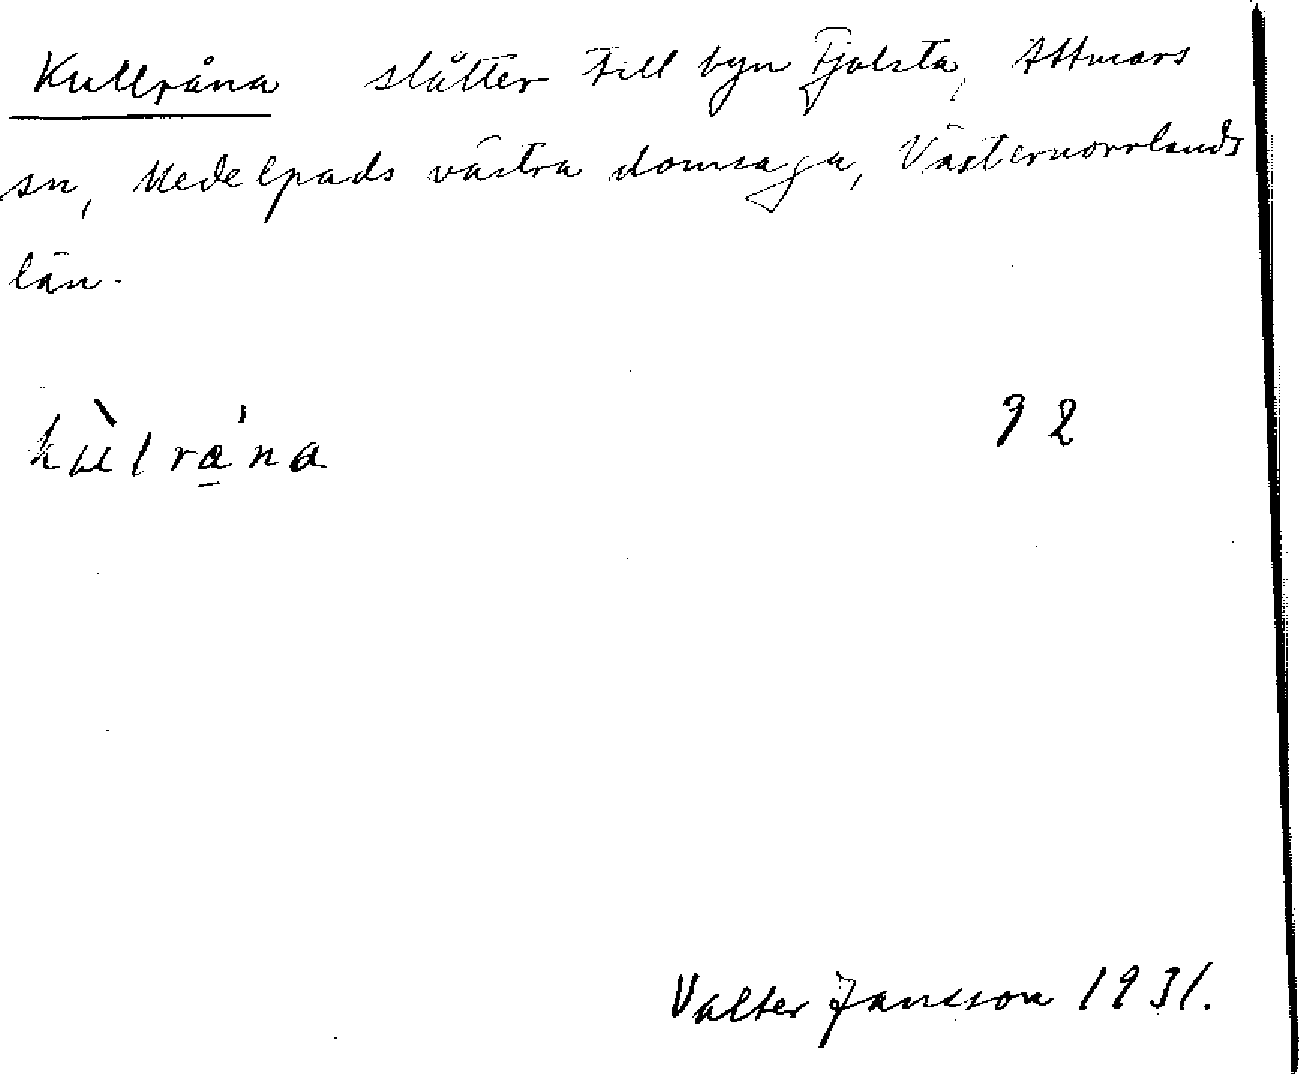 Kullråna slåtter till byn Fjolsta, Attmars
sn, Medelpads västra domsaga, Västernorrlands
län.
92
Valter Jansson 1931.